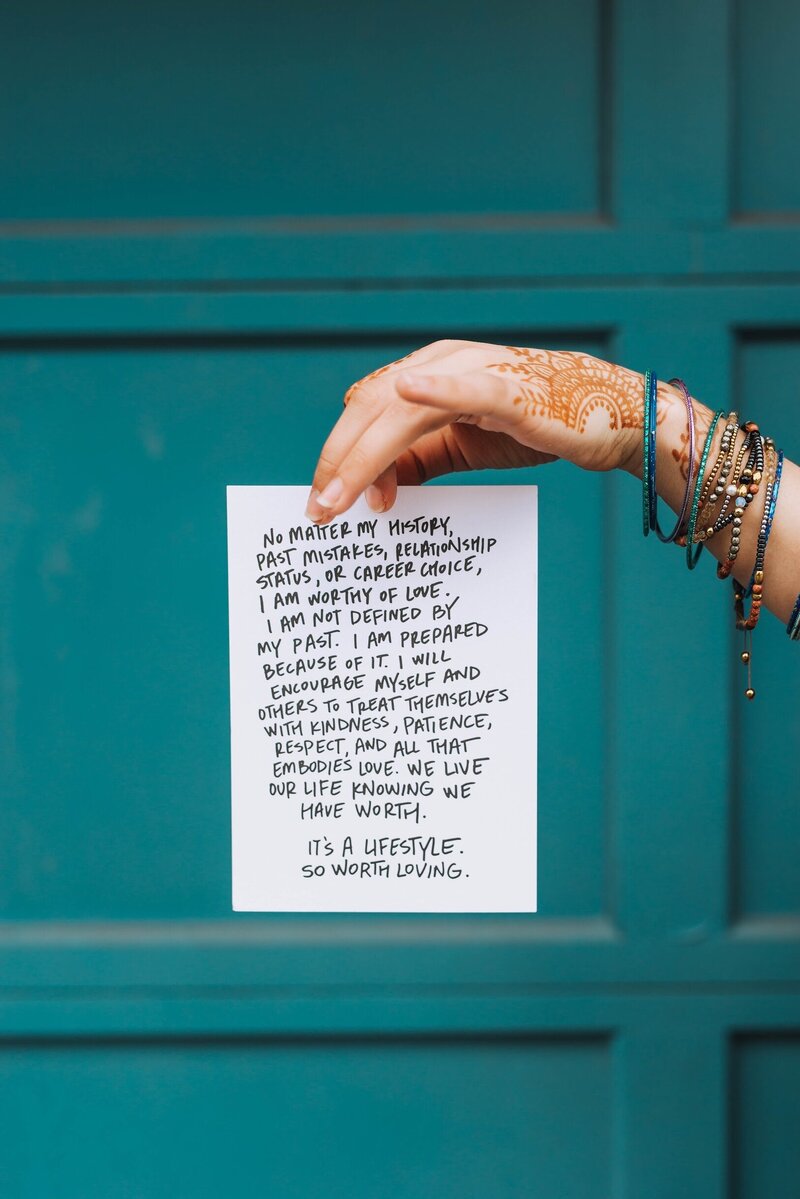 NO MATTER MY HISTORY,
PAST MISTAKES, RELATIONSHIP
STATUS, OR CAREER CHOICE,
I AM WORTHY OF LOVE.
I AM NOT DEFINED BY
MY PAST. I AM PREPARED
BECAUSE OF IT. I WILL
ENCOURAGE MYSELF AND
OTHERS TO TREAT THEMSELVES
WITH KINDNESS, PATIENCE,
RESPECT, AND ALL THAT
EMBODIES LOVE. WE LIVE
OUR LIFE KNOWING WE
HAVE WORTH.
IT'S A LIFESTYLE.
SO WORTH LOVING.